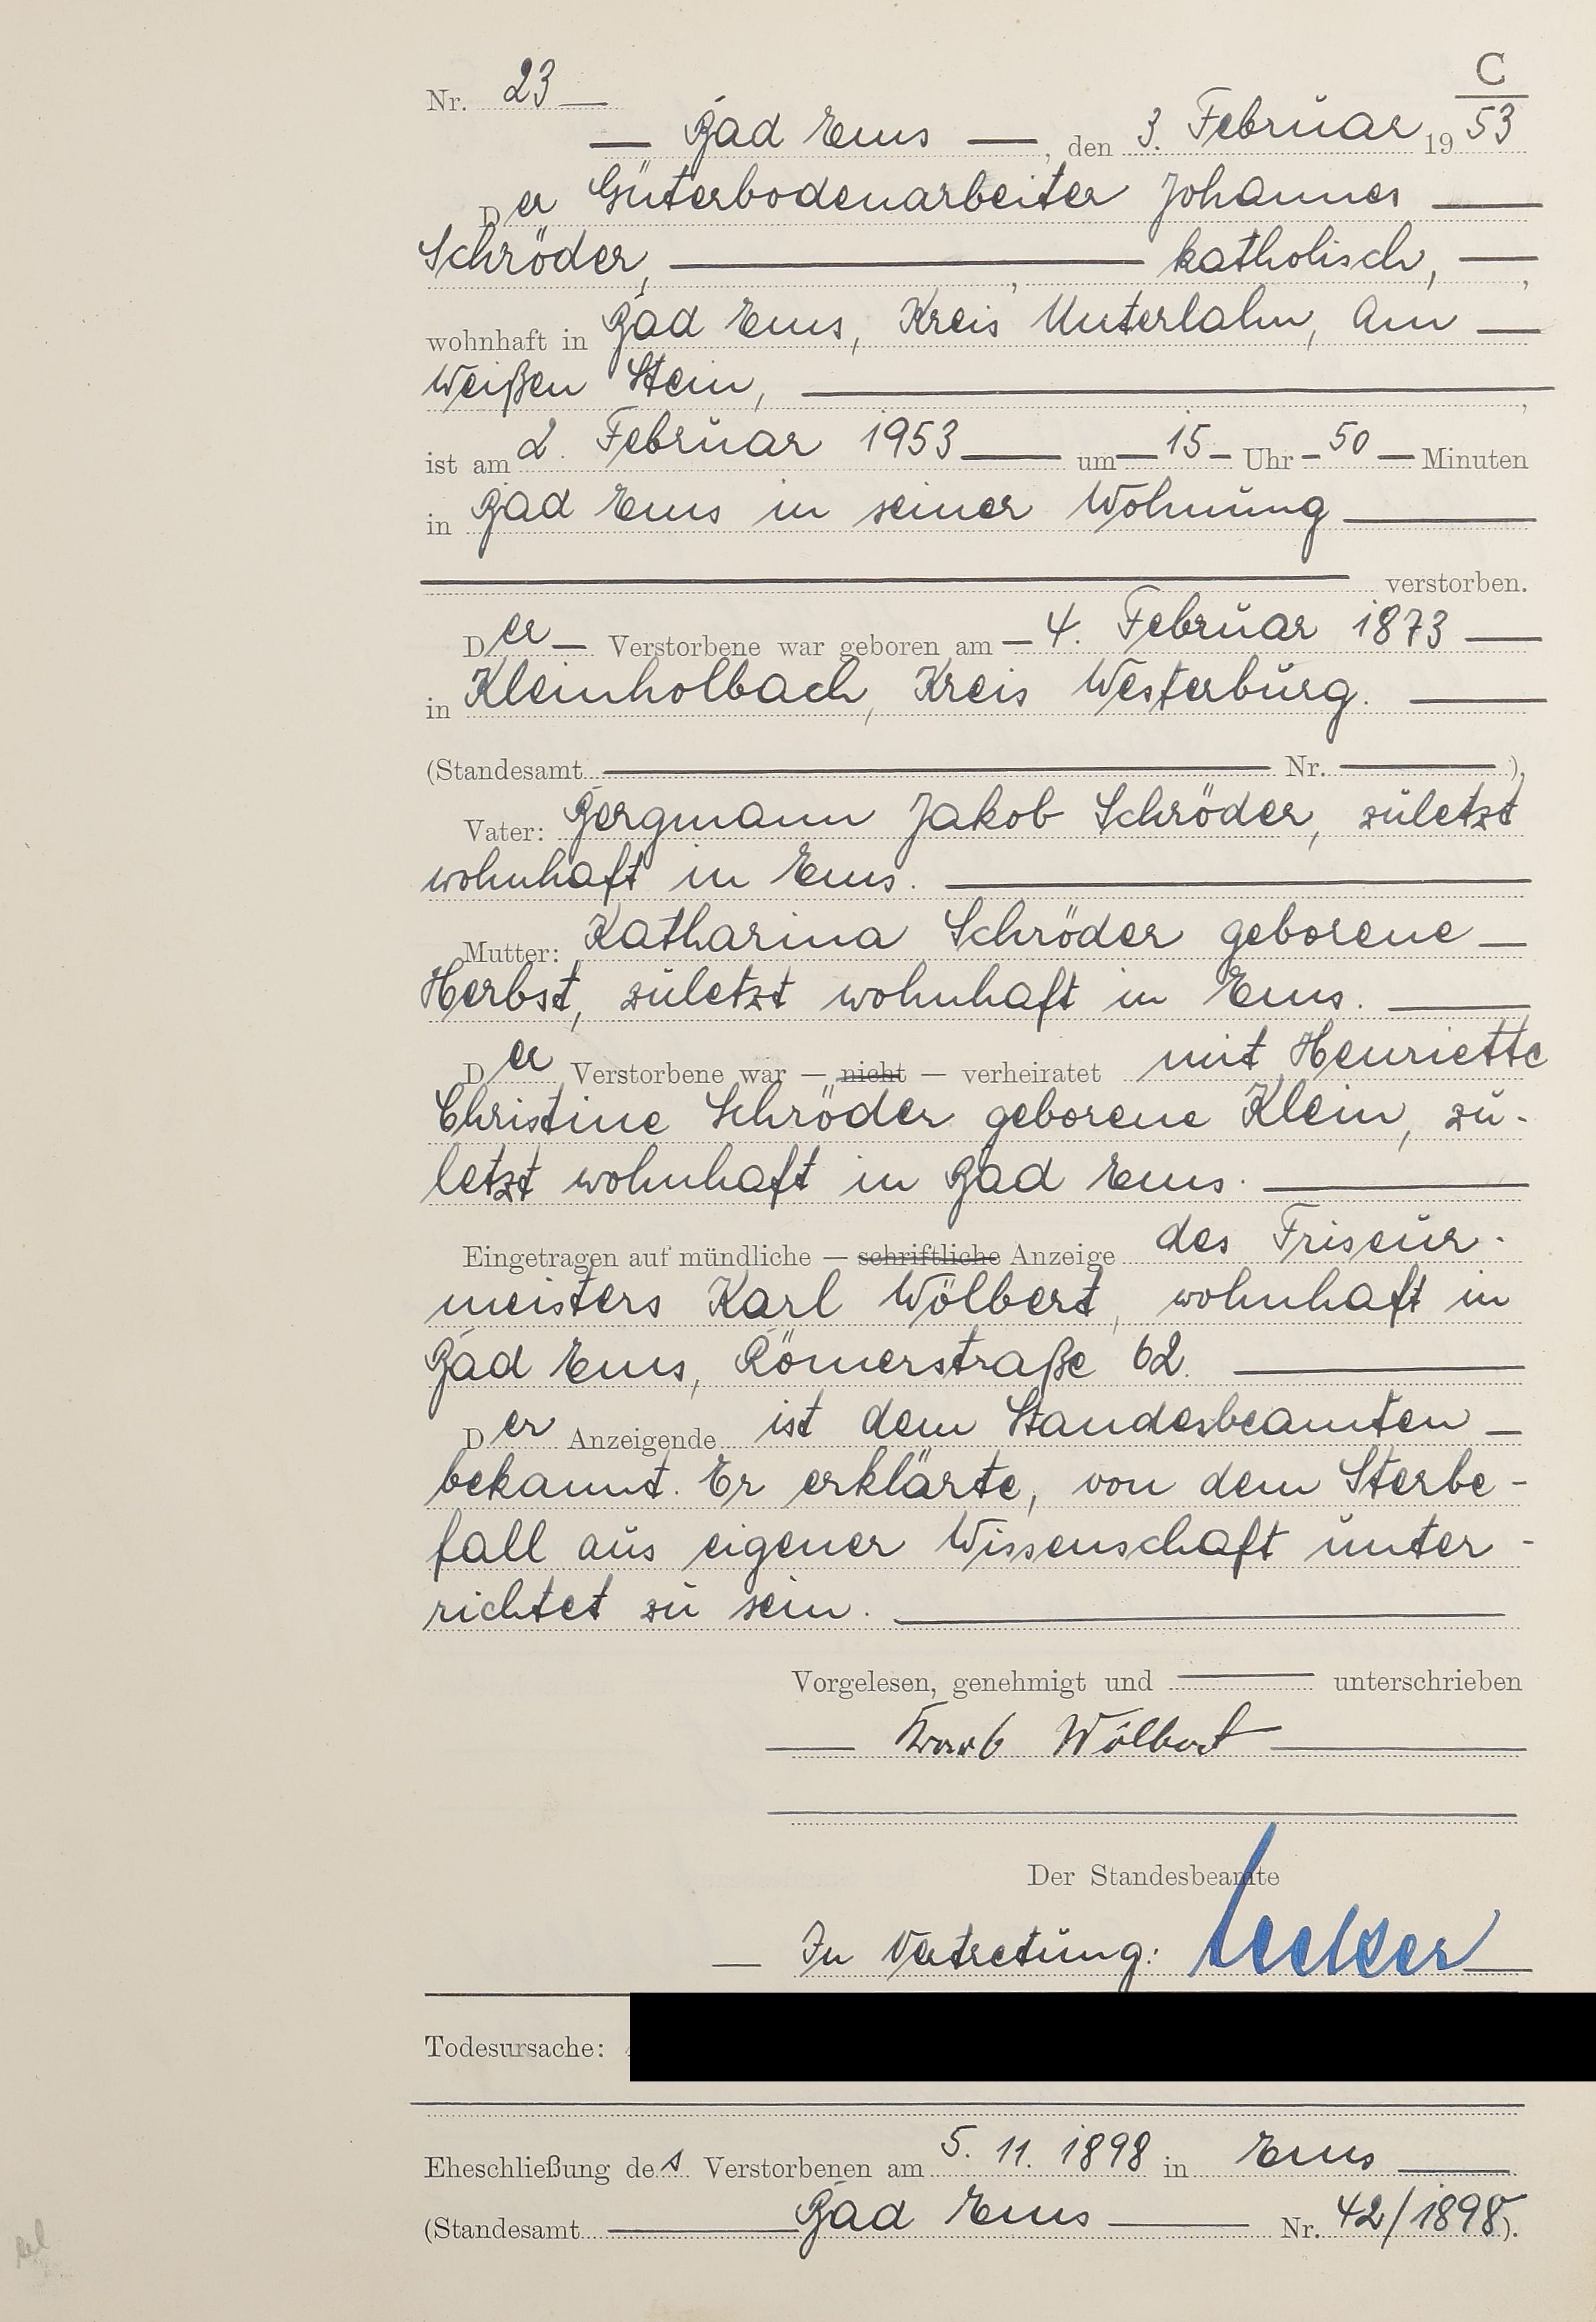 C
Nr. 23
Bad Ems, den 3. Februar 1953
Der Güterbodenarbeiter Johannes
Schröder, katholisch,
wohnhaft in Bad Ems, Kreis Unterlahn, Am
Weißen Stein,
ist am 2. Februar 1953 um 15 Uhr 50 Minuten
in Bad Ems in seiner Wohnung
verstorben.
Der Verstorbene war geboren am 4. Februar 1873
in Kleinholbach, Kreis Westerburg.
(Standesamt Nr. ),
Vater: Bergmann Jakob Schröder, zuletzt
wohnhaft in Ems.
Mutter: Katharina Schröder geborene
Herbst, zuletzt wohnhaft in Ems.
Der Verstorbene war — nicht — verheiratet mit Henriette
Christine Schröder geborene Klein, zu-
letzt wohnhaft in Bad Ems.
Eingetragen auf mündliche — schriftliche Anzeige des Friseur-
meisters Karl Wölbert, wohnhaft in
Bad Ems, Römerstraße 62.
Der Anzeigende ist dem Standesbeamten
bekannt. Er erklärte, von dem Sterbe-
fall aus eigener Wissenschaft unter-
richtet zu sein.
Vorgelesen, genehmigt und unterschrieben
Karl Wölbert
Der Standesbeamte
In Vertretung:
Todesursache:
Eheschließung des Verstorbenen am 5. 11. 1898 in Ems
(Standesamt Bad Ems Nr. 42/1898).